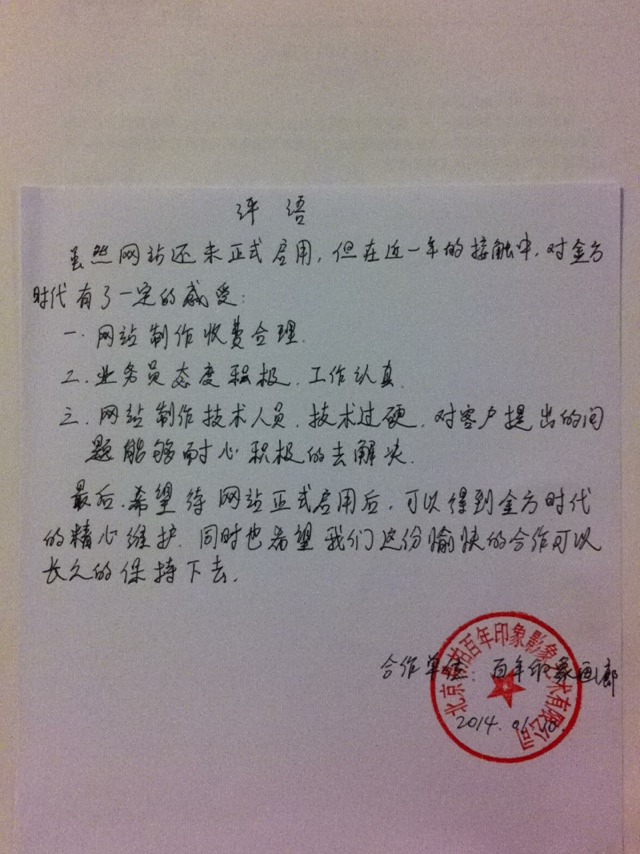 评语
虽然网站还未正式启用，但在近一年的接触中，对金方
时代有了一定的感受：
一．网站制作收费合理．
二．业务员态度积极．工作认真．
三．网站制作技术人员．技术过硬．对客户提出的问
题能够耐心积极的去解决．
最后．希望待网站正式启用后．可以得到金方时代
的精心维护．同时也希望我们这份愉快的合作可以
长久的保持下去．
合作单位 百年印象画廊
2014.
百年印象影象
术有限公司